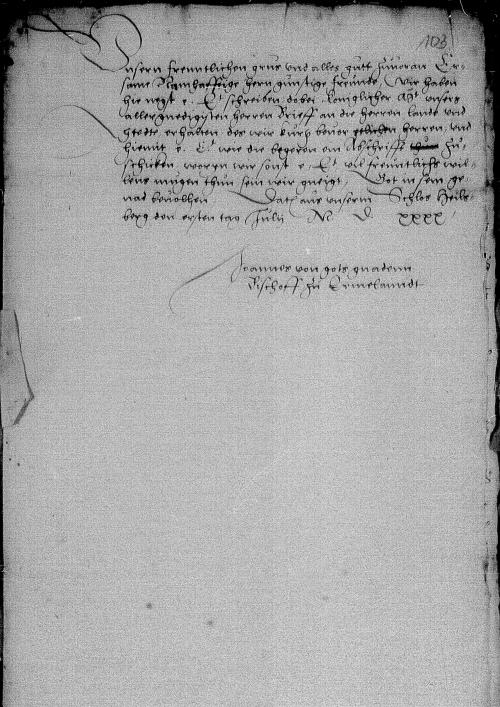 103
Unsern freuntlichen grus und alles gutt zuuoran Er-
same Namhafftige hern gunstige freunde, Wir haben
hie negst e. Et schreiben dobei koniglicher Mat unsers
allergnedigisten herren Brieff an die herren lande und
Stedte erhalten, des wir auch beuor etlichen herren, und
hiemit e. Et wie die begeren ein Abschrifft zu-
schicken, woryn wir sonst e. Et vil freuntlichs wil-
lens mugen thun sein wir gneigt, Got in sein ge-
nad beuolhen Datum aus unserm Schlos Heils-
berg den ersten tag Julij M D xxxx
Joannes von gots gnadenn
Bischoff zu Ermelanndt